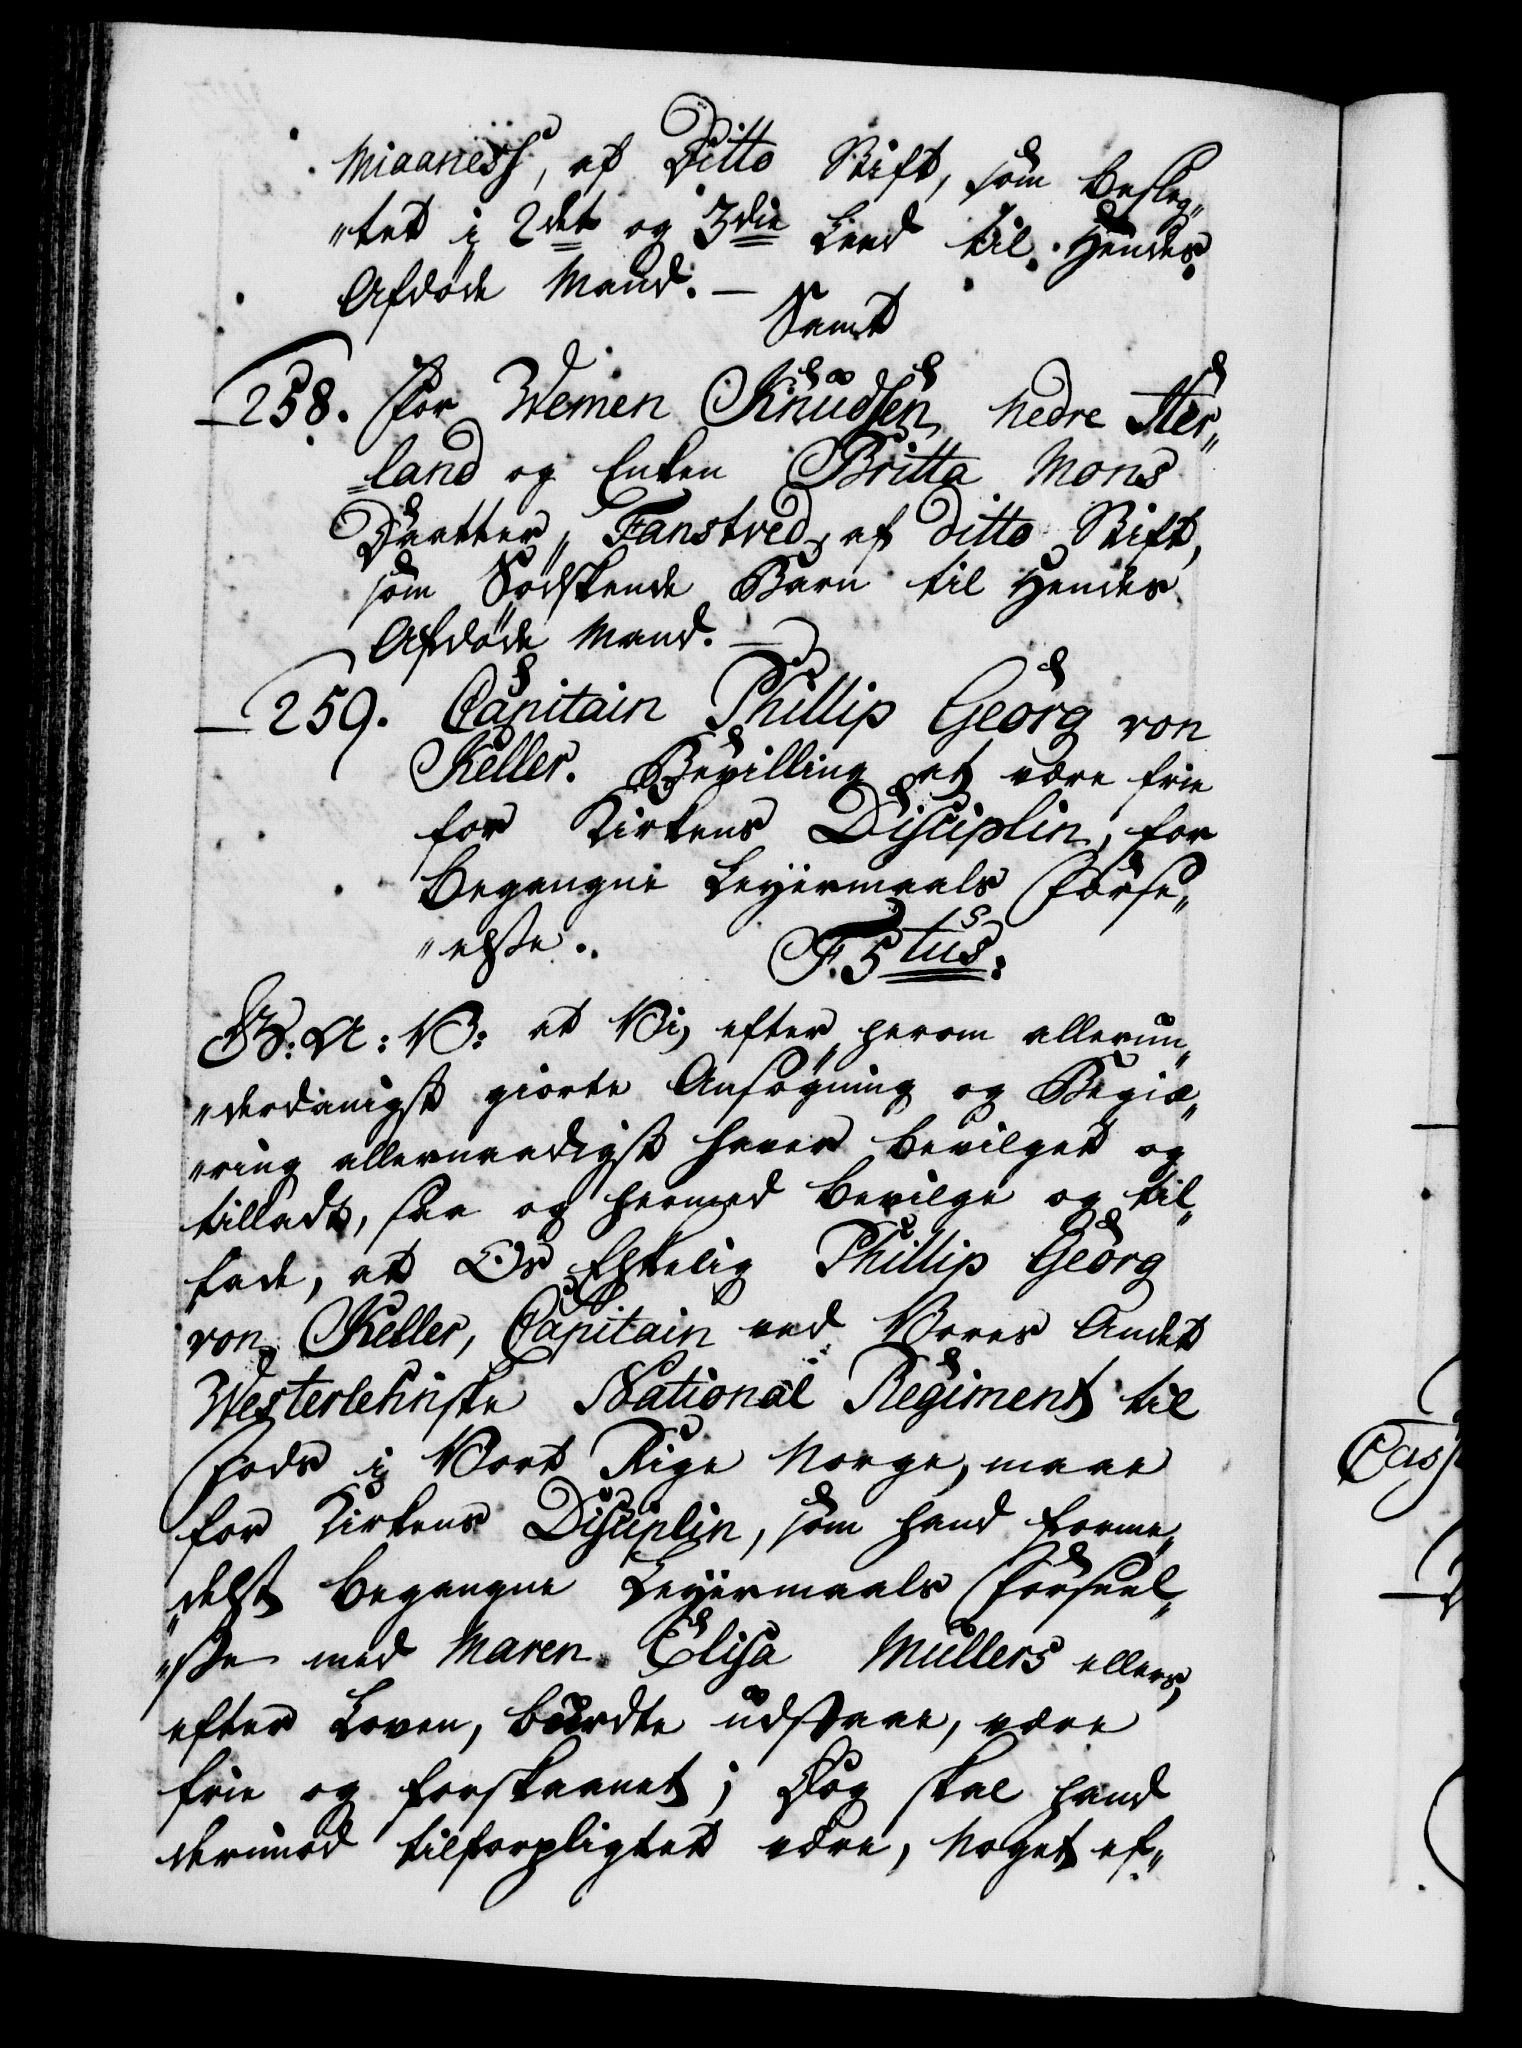 Miaaness, af Ditto Stift, som besleg„
„tet i 2det og 3die Leed til Hendes
Afdøde Mand. —
Samt
258. For Wemen Knudsen Nedre Ster„
„land og Enken Britta Mons
Daatter, Fanstved, af ditto Stift,
som Södskende Barn til Hendes
Afdöde Mand. —
259. Capitain Phillip Georg von
Keller. Bevilling at være frie
for Kirkens Disciplin, for
begangne Leyermaals Forse„
„else. F. 5tus:
G: A: V: at Vi, efter herom allerun„
„derdanigst giorte Ansögning og Begiæ„
„ring allernaadigst haver bevilget og
tilladt, saa og hermed bevilge og til„
lade, at Os Elskelig Phillip Georg
von Keller, Capitain ved Vores Andet
Westerlehnske National Regiment til
Fods i Vort Rige Norge, maae
for Kirkens Disciplin, som hand forme„
„delst begangne Leyermaals Forseel„
„se med Maren Elisa Mullers ellers,
efter Loven, burdte udstaae, være
frie og forskaanet; Dog skal hand
derimod tilforpligtet være, Noget ef„